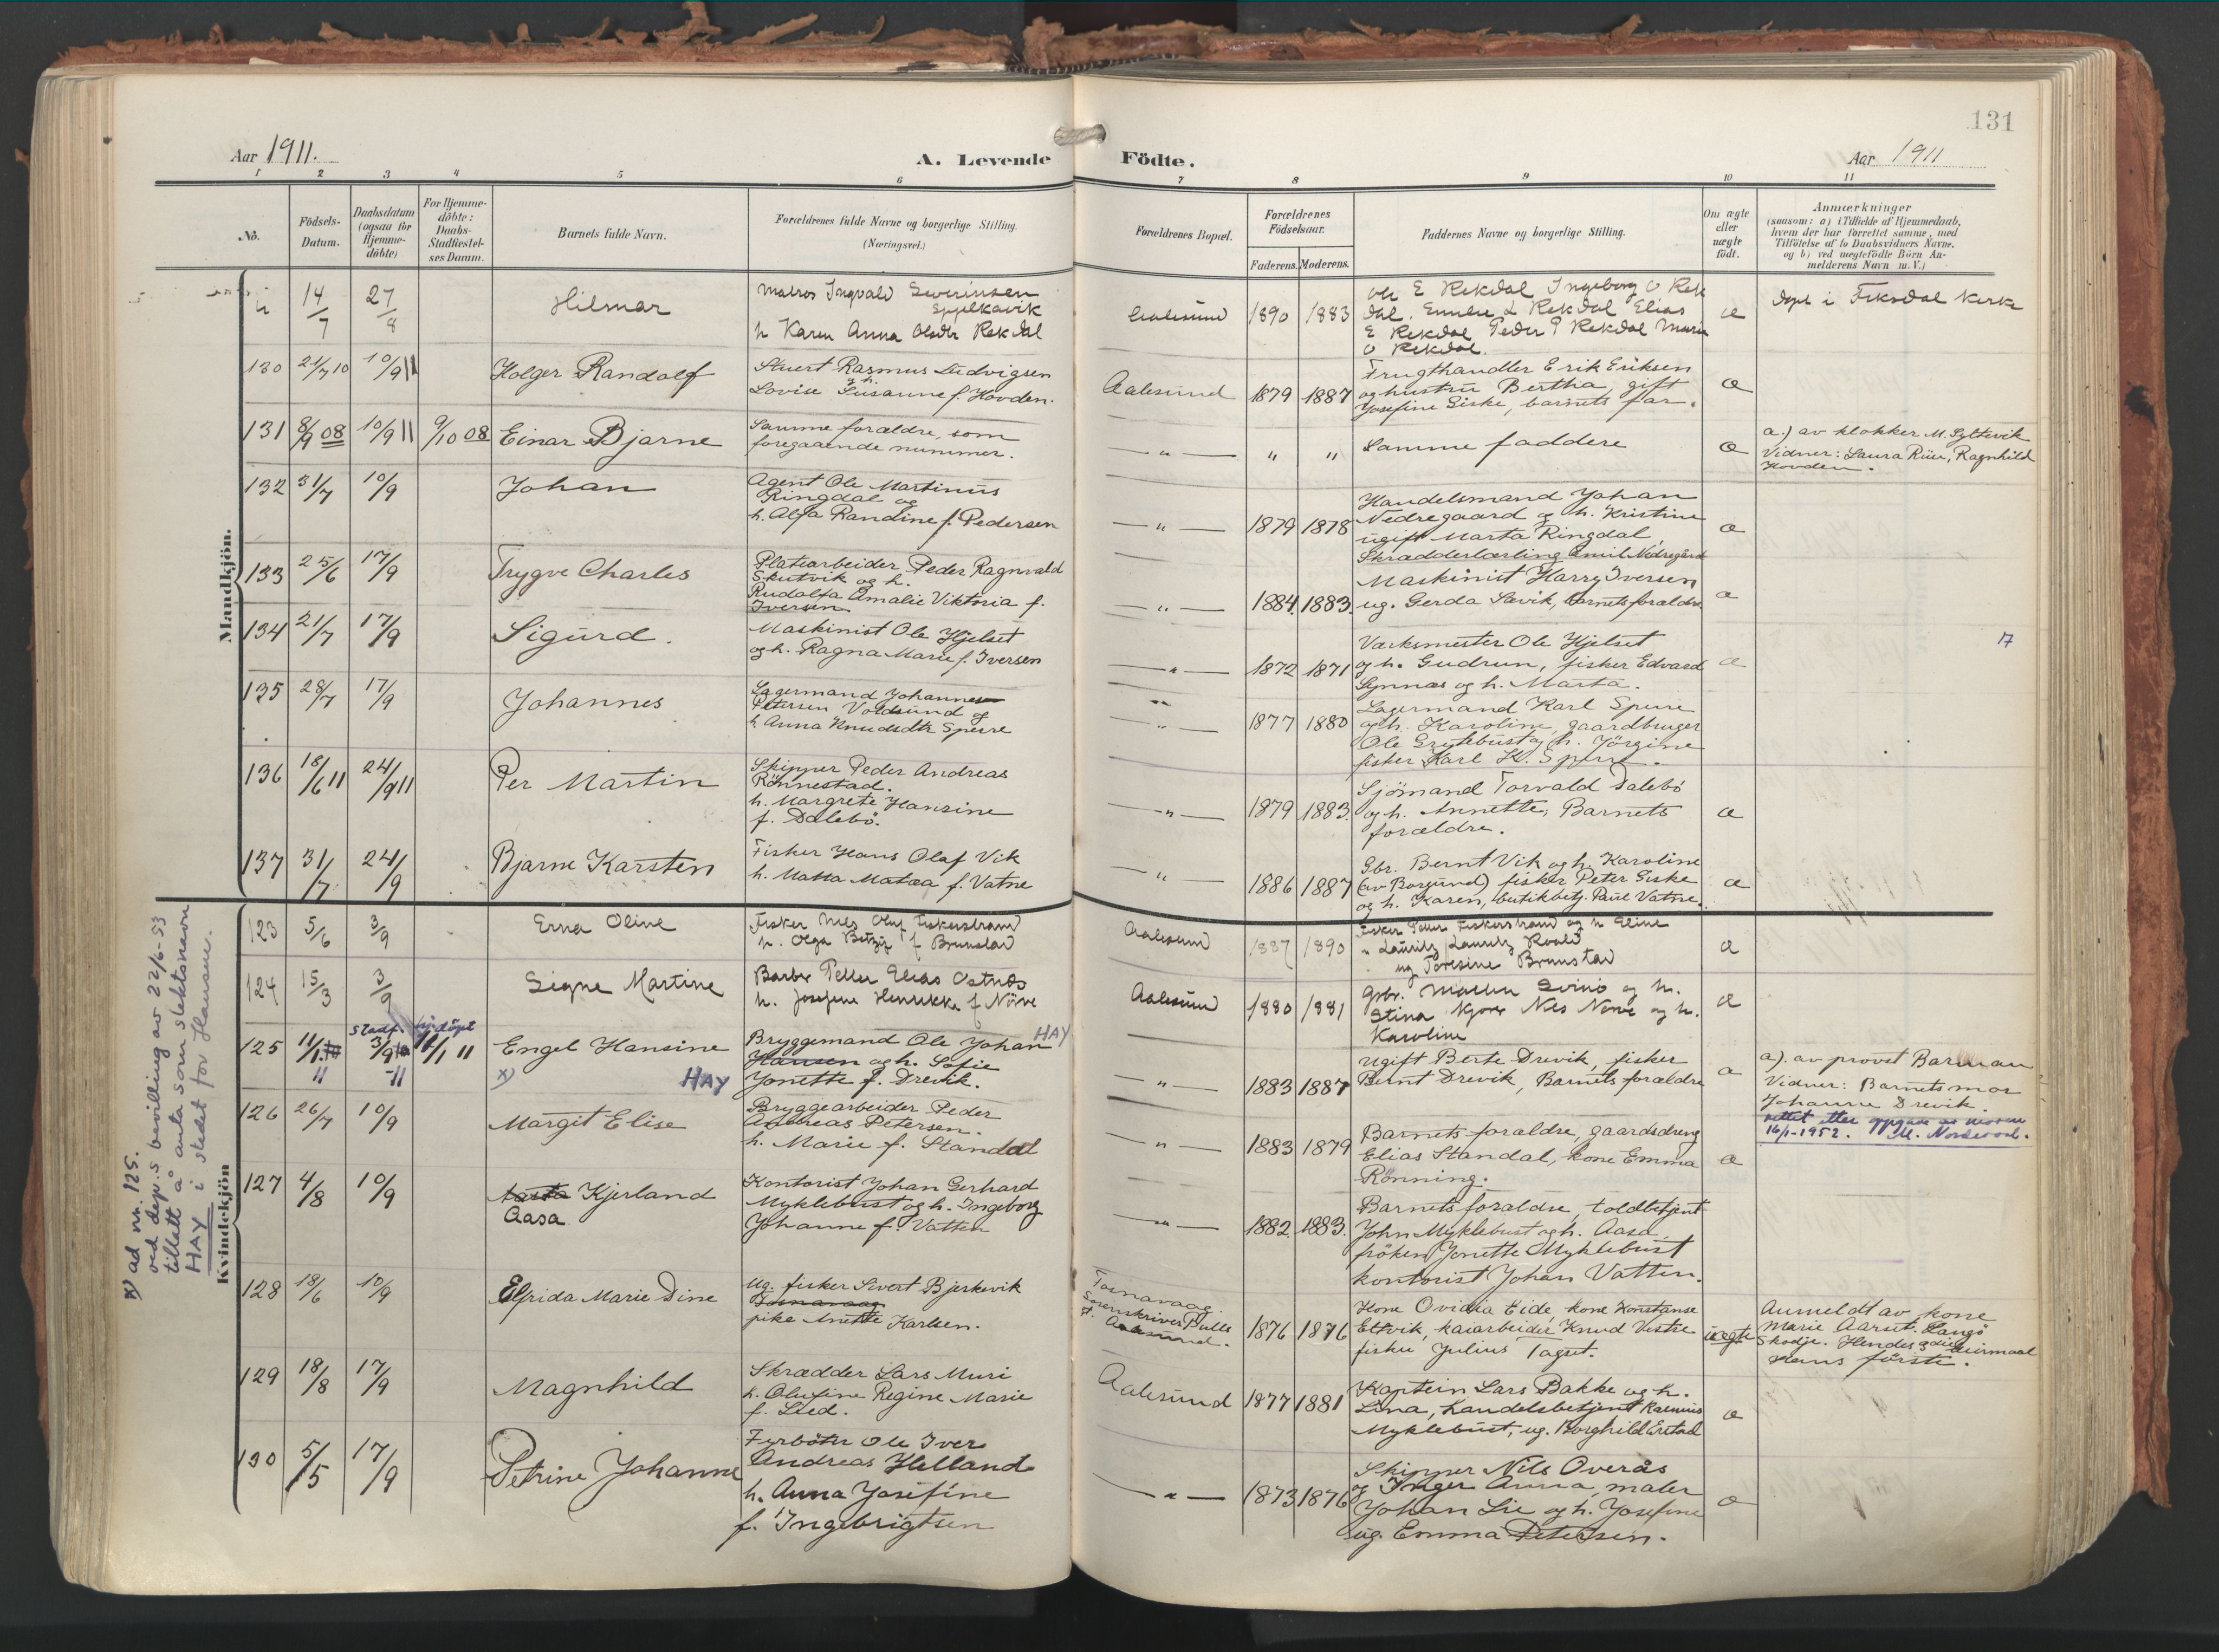 131
Aar 1911.
A. Levende
Födte.
Aar 1911
1 2 3 4 5 6 7 8 9 10 11
No.
Födsels-
Datum.
Daabsdatum
(ogsaa for
Hjemme-
döbte)
For Hjemme-
döbte:
Daabs-
Stadfæstel-
ses Datum.
Barnets fulde Navn.
Forældrenes fulde Navne og borgerlige Stilling.
(Næringsvei.)
Forældrenes Bopæl.
Forældrenes
Födselsaar.
Faderens. Moderens.
Faddernes Navne og borgerlige Stilling.
Om ægte
eller
uægte
födt.
Anmærkninger
(saasom: a) i Tilfælde af Hjemmedaab,
hvem der har forrettet samme, med
Tilföielse af to Daabsvidners Navne.
og b) ved uægtefödte Börn An-
melderens Navn m. V.)
Mandkjön.
14/7 27/8 Hilmar
Matros Ingvald Severinsen
Spjelkavik
h Karen Anna Olsdtr Rekdal
Aalesund 1890 1883
Ole E Rekdal Ingeborg O Rek
dal. L Rekdal Elias
E Rekdal Peder P Rekdal Marie
O Rekdal.
æ
Døpt i Fiksdal Kirke
130 21/7 10 10/9 11 Holger Randolf
Stuert Rasmus Ludvigsen
og h.
Lovise Susanne f. Hovden.
Aalesund 1879 1887
Frugthandler Erik Eriksen
og hustru Bertha, gift
Josefine Giske, barnets far.
æ
131 8/9 08 10/9 11 9/10 08 Einar Bjarne
Samme forældre, som
foregaaende nummer.
— " — " "
Samme faddere
æ
a.) av klokker M. Syltevik
Vidner: Laura Riise, Ragnhild
Hovden.
132 31/7 10/9 Johan
Agent Ole Martinus
Ringdal og
h. Alfa Randine f. Pedersen
— " — 1879 1878
Handelsmand Johan
Nedregaard og h. Kristine
ugift Marta Ringdal,
Skrædderlærling Emil Nedregård
æ
133 25/6 17/9 Trygve Charles
Platearbeider Peder Ragnvald
Skutvik og h.
Rudolfa Amalie Viktoria f.
Iversen
— " — 1884. 1883.
Maskinist Harry Iversen
ug. Gerda Sævik, barnets forældre
æ
134 21/7 17/9 Sigurd.
Maskinist Ole Hjelset
og h. Ragna Marie f. Iversen
— " — 1872 1871
Værksmester Ole Hjelset
og h. Gudrun, fisker Edvard
Synnæs og h. Marta.
æ
17
135 28/7 17/9 Johannes
Lagermand Johannes
Petersen Voldsund og
h. Anna Knudsdtr Sperre
— " — 1877 1880
Lagermand Karl Sperre
og h. Karoline, gaardbruger
Ole Grytebust og h. Jörgine
fisker Karl K. Sperre.
136 18/6 11 24/9 11 Per Martin
Skipper Peder Andreas
Rönnestad.
h. Margrete Hansine
f. Dalebö.
— " — 1879 1883.
Sjömand Torvald Dalebö
og h. Annette, Barnets
forældre.
æ
137 31/7 24/9 Bjarne Karsten
Fisker Hans Olaf Vik
h. f. Vatne
— " — 1886 1887
Gbr. Bernt Vik og h. Karoline
(av Borgund) fisker Peter Giske
og h. Karen, butikbetj. Paul Vatne.
æ
Kvindekjön
123 5/6 3/9 Erna Oline
Fisker Nils Oluf Fiskerstrand
h. Olga f Brunstad
Aalesund 1887 1890
Fisker Peter Fiskerstrand og h Eline
" Lauritz Roald
ug Toresine Brunstad
æ
124 15/3 3/9 Signe Martine
Barber Petter Elias Ostnæs
h. Josefine Henrikke f Nörve
Aalesund 1880 1881
Gbr. Martin Svinö og h.
Stina Nils Nörve og h.
Karoline
æ
125 11/1 11 stadf. 3/9 11 hj.döpt 11 Engel Hansine
x) HAY
Bryggemand Ole Johan HAY
Hansen og h. Sofie
Jonette f. Drevik.
— " — 1883 1887
Ugift Berte Drevik, fisker
Bernt Drevik, Barnets forældre
æ
a). av provst Barman
Vidner: Barnets mor
Johanne Drevik.
rettet etter oppgave av moren
16/1-1952. M. Nordstrand.
126 26/7 10/9 Margit Elise
Bryggearbeider Peder
Andreas Petersen.
h. Marie f. Standal
" 1883 1879
Barnets forældre, gaardsdreng
Elias Standal, kone Emma
Rönning.
æ
127 4/8 10/9 Aasta Kjerland
Aasa
Kontorist Johan Gerhard
Myklebust og h. Ingeborg
Johanne f. Vatten
— " — 1882. 1883.
Barnets forældre, toldbetjent
John Myklebust og h. Aasa
fröken Jonette Myklebust
kontorist Johan Vatten.
128 18/6 10/9 Elfrida Marie Dine
Ug. fisker Sivert Bjerkevik
Fosnavaag
pike Anette Karlsen.
Fosnavaag.
Sorenskriver
Aalesund.
1876 1876
Kone Ovidia Eide, kone Konstanse
Eltvik, kaiarbeider Knud Vestre
fisker Julius
uægte
Anmeldt av kone
Marie Aarset. Langö
Skodje. Hendes 3die leiermaal
Hans förste.
129 18/8 17/9 Magnhild
Skrædder Lars Muri
h. Olufine Regine Marie
f. Lied.
Aalesund 1877 1881
Kaptein Lars Bakke og h.
Lina, handelsbetjent Rasmus
Myklebust, ug. Borghild Erstad
æ
130 5/5 17/9 Petrine Johanne
Fyrböter Ole Iver
Andreas Helland
h. Anna Josefine
f. Ingebrigtsen
— " — 1873 1876
Skipper Nils Overås
og Inger Anna, maler
Johan Lie og h. Josefine
ug. Emma Petersen.
æ
x) ad nr. 125.
ved dep.s bevilling av 22/6-53
tillatt å anta som slektsnavn
HAY i stedet for Hansen.